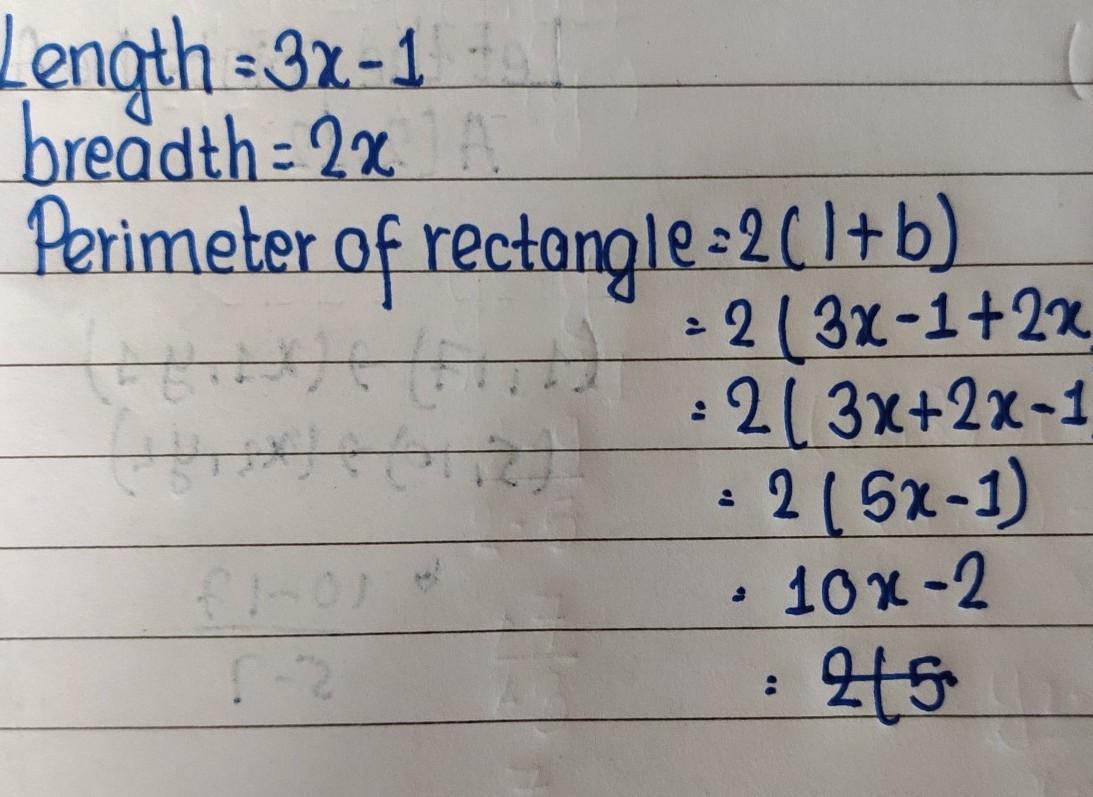 Length = 3x - 1
breadth = 2x
Perimeter of rectangle = 2(l+b)
= 2(3x-1+2x
= 2(3x+2x-1
= 2(5x-1)
= 10x-2
= 2(5